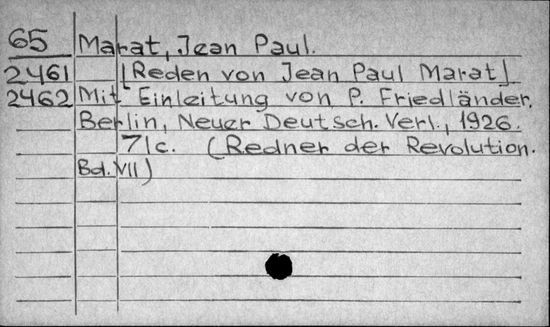 65 Marat, Jean Paul.
2461 [Reden von Jean Paul Marat]
2462 Mit Einleitung von P. Friedländer.
Berlin, Neuer Deutsch. Verl., 1926.
71c. (Redner der Revolution.
Bd. VII)